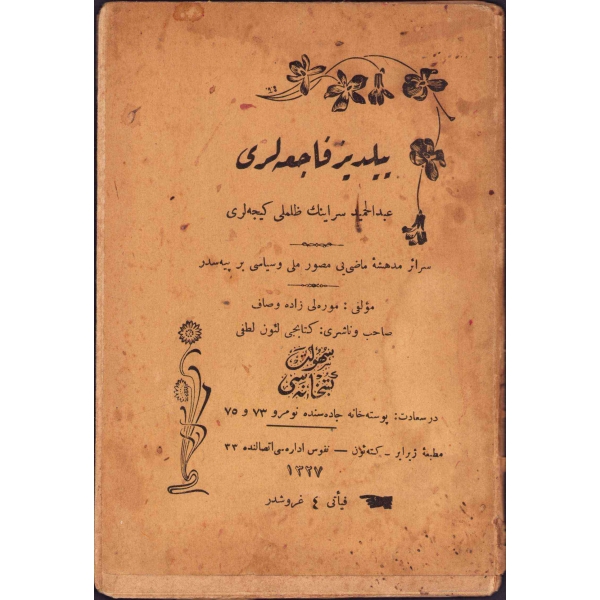 ييلديز فاجعه لری
عبدالحميد سراينك ظلمتلی كيجه لری
سرائر مدهشهٔ ماضی يی مصور ملی وسياسی بر پيه سدر
مؤلفی : موره لی زاده وصاف
صاحب وناشری: كتابجی لئون لطفی
سهولت
كتبخانه سی
درسعادت: پوسته خانه جاده سنده نومرو ٧٣ و ٧٥
مطبعهٔ ژيراير - كته ئون — نفوس اداره سی اتصالنده ٣٣
١٣٢٧
فيأتی ٤ غروشدر